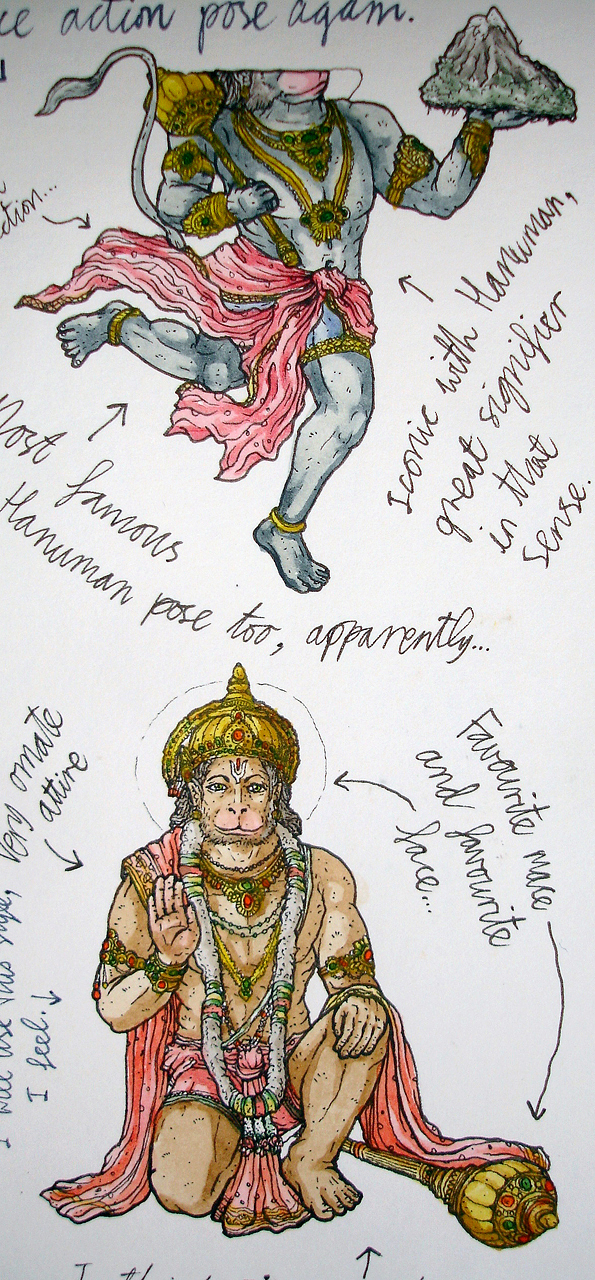 action pose again.
Iconic with Hanuman,
great signifier
in that
sense.
Most famous
Hanuman pose too, apparently...
Very ornate
attire
Favourite mace
and favourite
face...
I will use this
I feel.